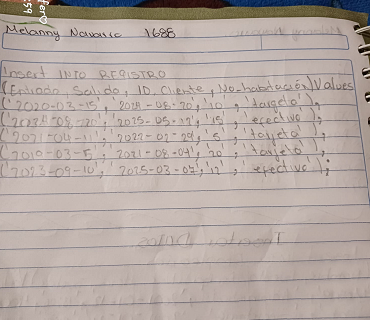 Melanny Navarro 1688
Insert INTO REGISTRO
(Entrada, Salida, ID, Cliente, No-habitación) Values
('2020-03-15', '2024-08-20', '10', 'targeta'),
'2025-05-12', '15', 'efectivo'),
('2021-04-11', '5', 'tarjeta'),
('2019-03-5', '2021-08-04', '20', 'tarjeta'),
('2023-09-10', '2025-03-07', '12', 'efectivo');